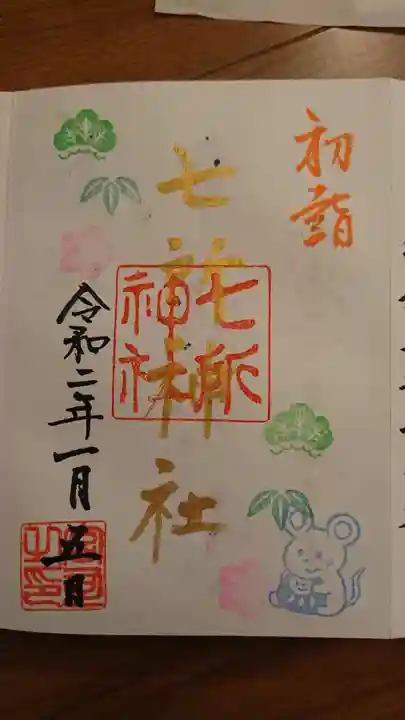 初詣
七所神社
七所
神社
令和二年一月五日